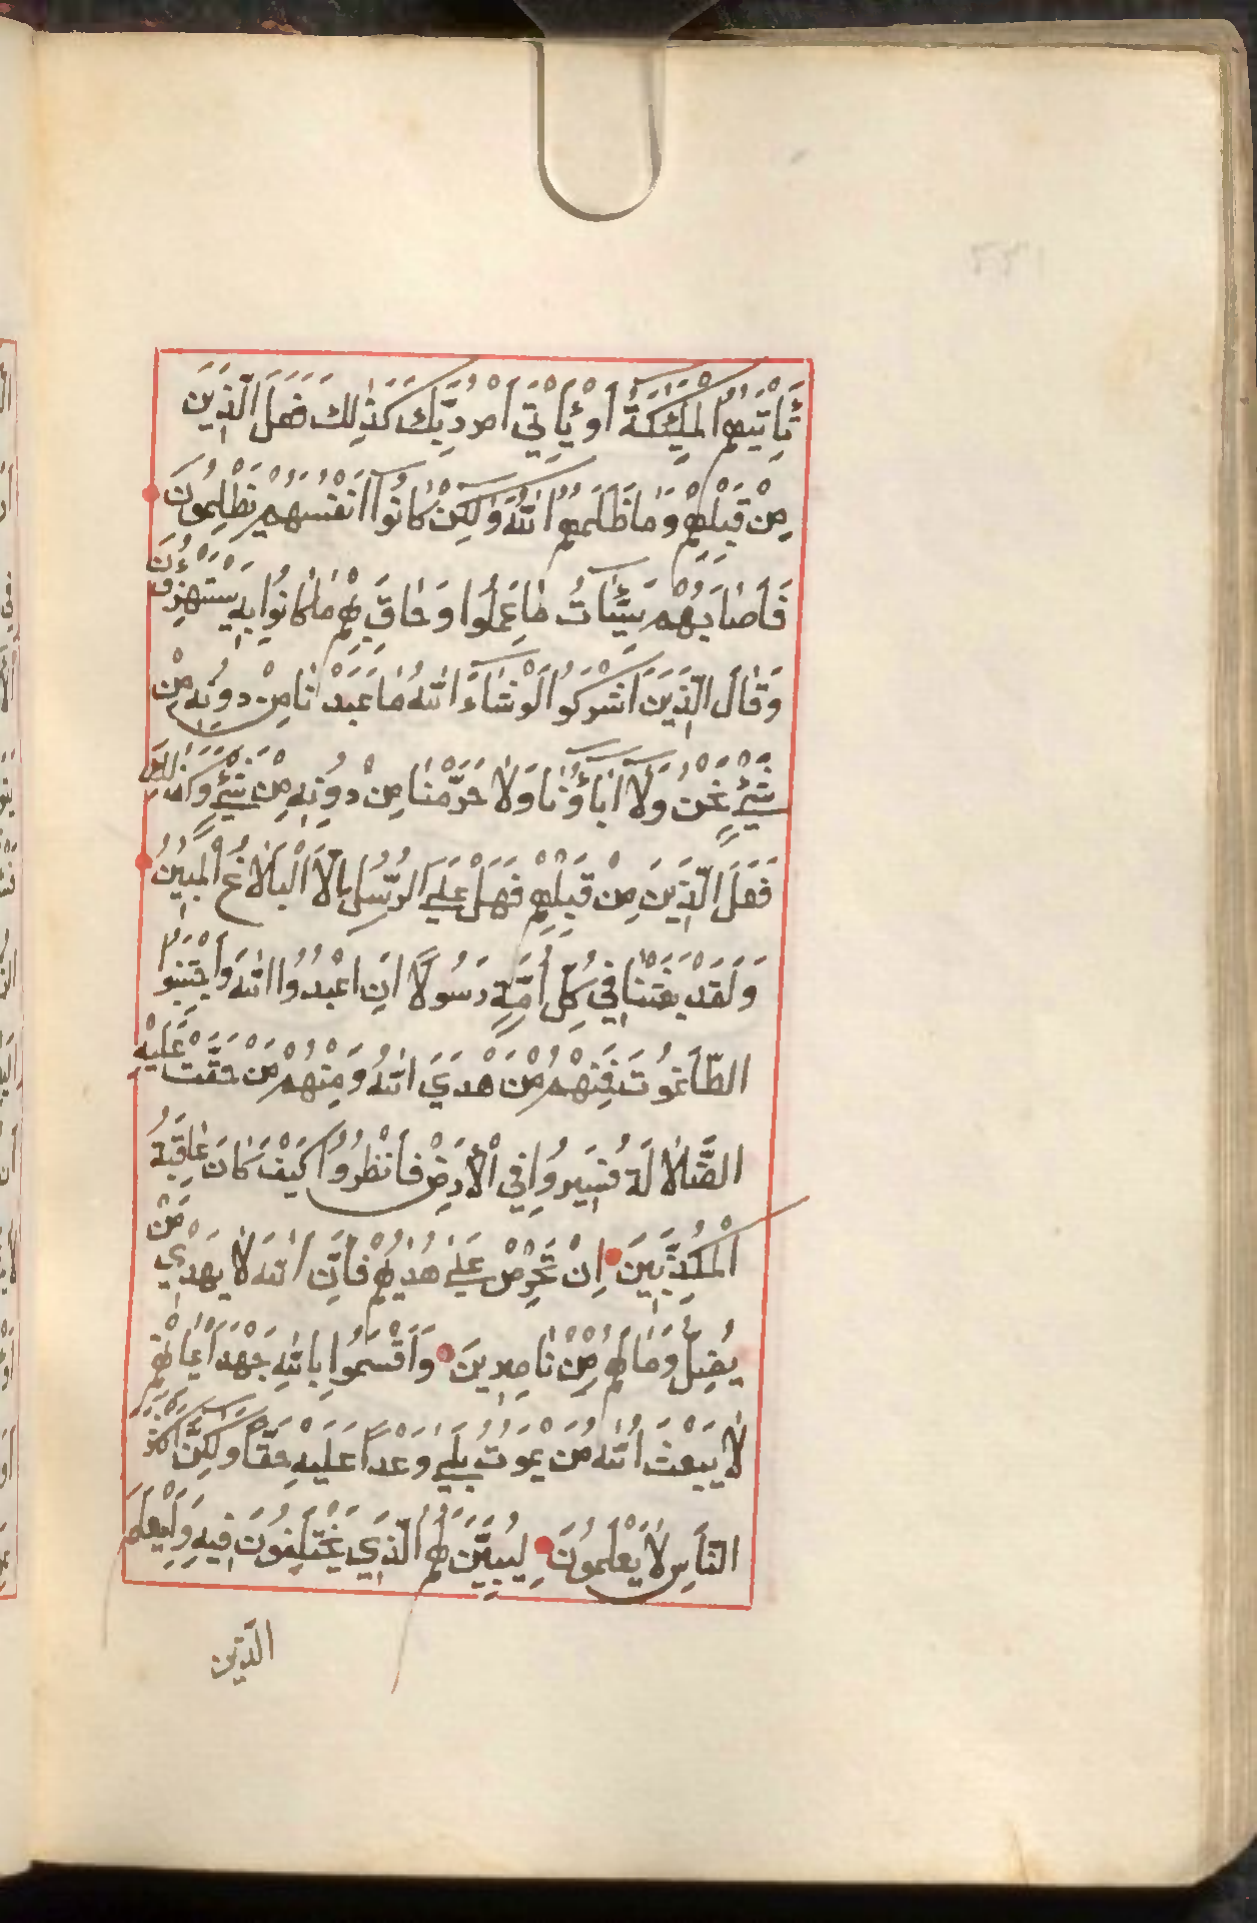 تَأْتِيَهُمُ الْمَلٰئِكَةُ أَوْ يَأْتِيَ أَمْرُ رَبِّكَ كَذٰلِكَ فَعَلَ الَّذِينَ
مِنْ قَبْلِهِمْ وَمَا ظَلَمَهُمُ اللّٰهُ وَلٰكِنْ كَانُوا أَنْفُسَهُمْ يَظْلِمُونَ
فَأَصَابَهُمْ سَيِّئَاتُ مَا عَمِلُوا وَحَاقَ بِهِمْ مَا كَانُوا بِهِ يَسْتَهْزِؤُنَ
وَقَالَ الَّذِينَ أَشْرَكُوا لَوْ شَاءَ اللّٰهُ مَا عَبَدْنَا مِنْ دُونِهِ مِنْ
شَيْءٍ نَحْنُ وَلَا آبَاؤُنَا وَلَا حَرَّمْنَا مِنْ دُونِهِ مِنْ شَيْءٍ كَذٰلِكَ
فَعَلَ الَّذِينَ مِنْ قَبْلِهِمْ فَهَلْ عَلَى الرُّسُلِ إِلَّا الْبَلَاغُ الْمُبِينُ
وَلَقَدْ بَعَثْنَا فِي كُلِّ أُمَّةٍ رَسُولًا أَنِ اعْبُدُوا اللّٰهَ وَاجْتَنِبُوا
الطَّاغُوتَ فَمِنْهُمْ مَنْ هَدَى اللّٰهُ وَمِنْهُمْ مَنْ حَقَّتْ عَلَيْهِ
الضَّلَالَةُ فَسِيرُوا فِي الْأَرْضِ فَانْظُرُوا كَيْفَ كَانَ عَاقِبَةُ
الْمُكَذِّبِينَ إِنْ تَحْرِصْ عَلَى هُدٰيهُمْ فَإِنَّ اللّٰهَ لَا يَهْدِي مَنْ
يُضِلُّ وَمَا لَهُمْ مِنْ نَاصِرِينَ وَأَقْسَمُوا بِاللّٰهِ جَهْدَ أَيْمَانِهِمْ
لَا يَبْعَثُ اللّٰهُ مَنْ يَمُوتُ بَلَى وَعْدًا عَلَيْهِ حَقًّا وَلٰكِنَّ أَكْثَرَ
النَّاسِ لَا يَعْلَمُونَ لِيُبَيِّنَ لَهُمُ الَّذِي يَخْتَلِفُونَ فِيهِ وَلِيَعْلَمَ
الَّذِينَ